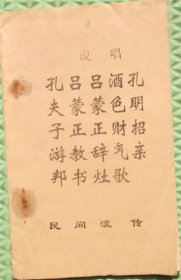 说唱
孔明招亲
酒色财气歌
吕蒙正辞灶
吕蒙正教书
孔夫子游邦
民间流传